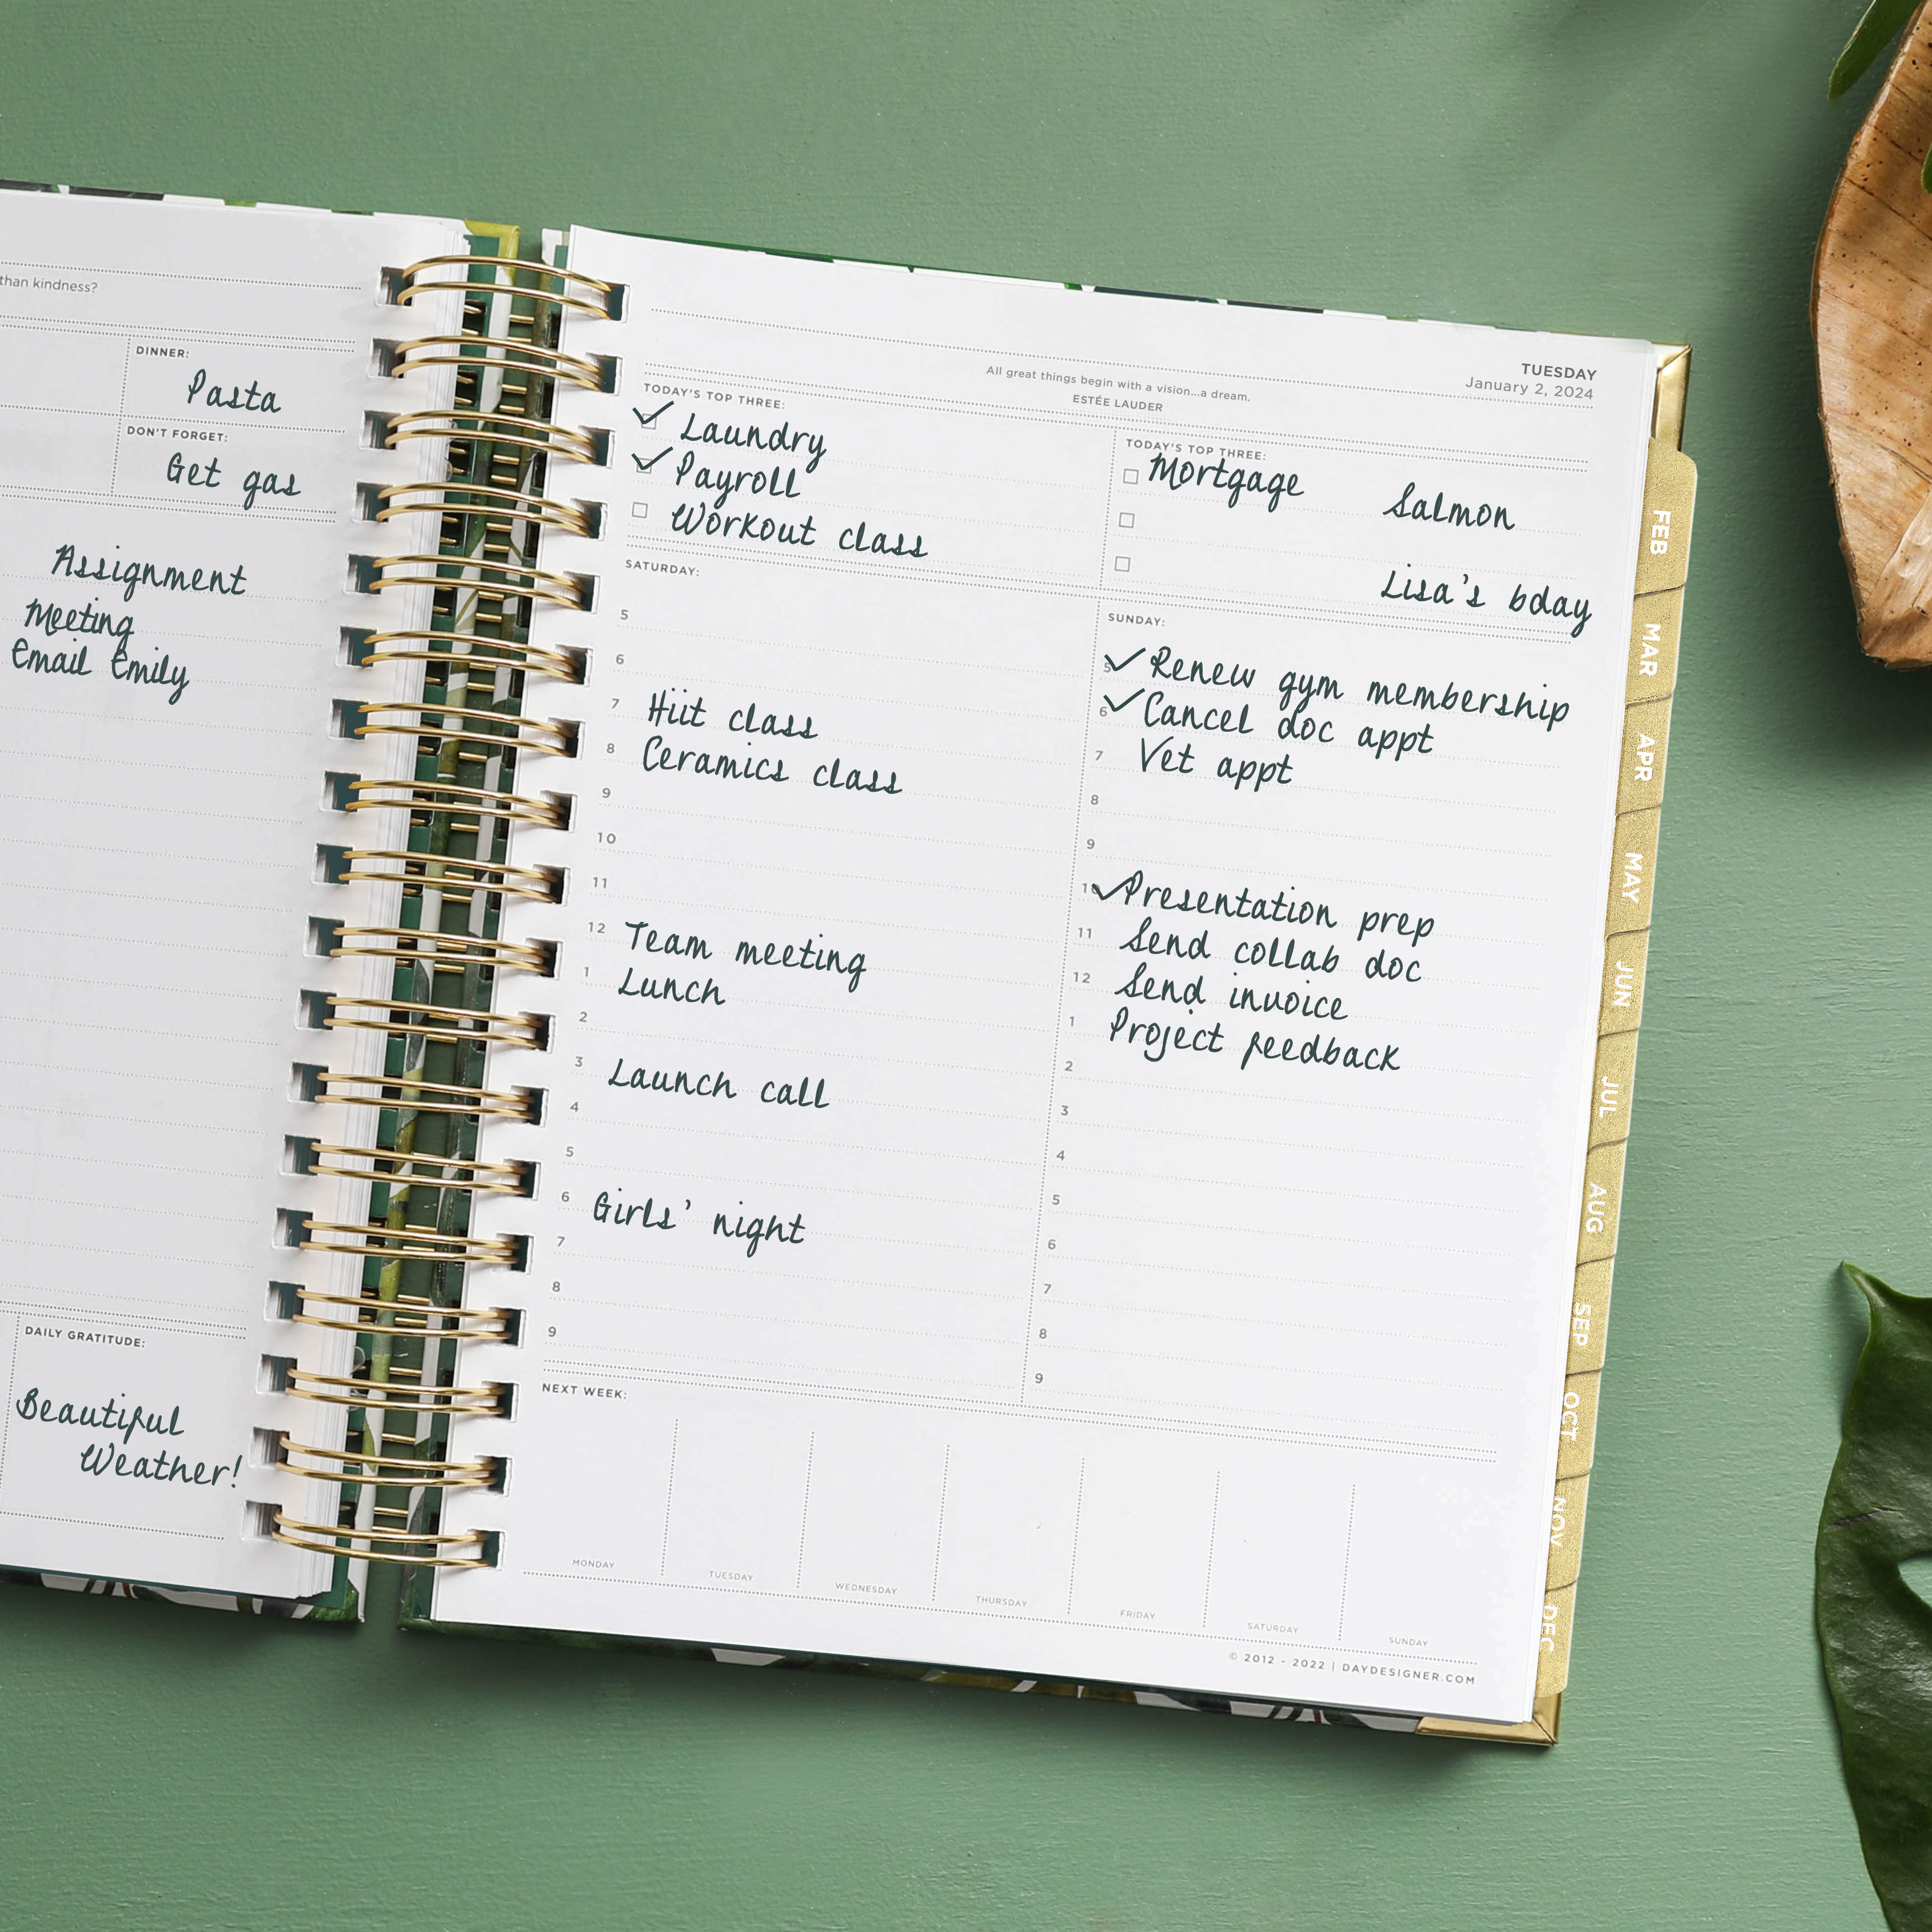 than kindness?
DINNER:
Pasta
DON'T FORGET:
Get gas
Assignment
Meeting
Email Emily
DAILY GRATITUDE:
Beautiful
Weather!
TUESDAY
January 2, 2024
All great things begin with a vision...a dream.
ESTÉE LAUDER
TODAY'S TOP THREE:
Laundry
Payroll
Workout class
TODAY'S TOP THREE:
Mortgage Salmon
Lisa's bday
SATURDAY:
5
6
7 Hiit class
8 Ceramics class
9
10
11
12 Team meeting
1 Lunch
2
3 Launch call
4
5
6 Girls' night
7
8
9
SUNDAY:
5 Renew gym membership
6 Cancel doc appt
7 Vet appt
8
9
10 Presentation prep
11 Send collab doc
12 Send invoice
1 Project feedback
2
3
4
5
6
7
8
9
NEXT WEEK:
MONDAY
TUESDAY
WEDNESDAY
THURSDAY
FRIDAY
SATURDAY
SUNDAY
© 2012 - 2022 | DAYDESIGNER.COM
FEB
MAR
APR
MAY
JUN
JUL
AUG
SEP
OCT
NOV
DEC